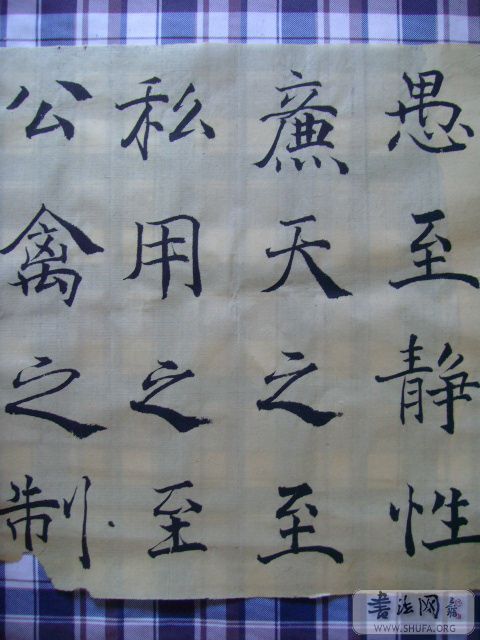 愚至静性
廉天之至
私用之至
公禽之制
書法网
WWW.SHUFA.ORG